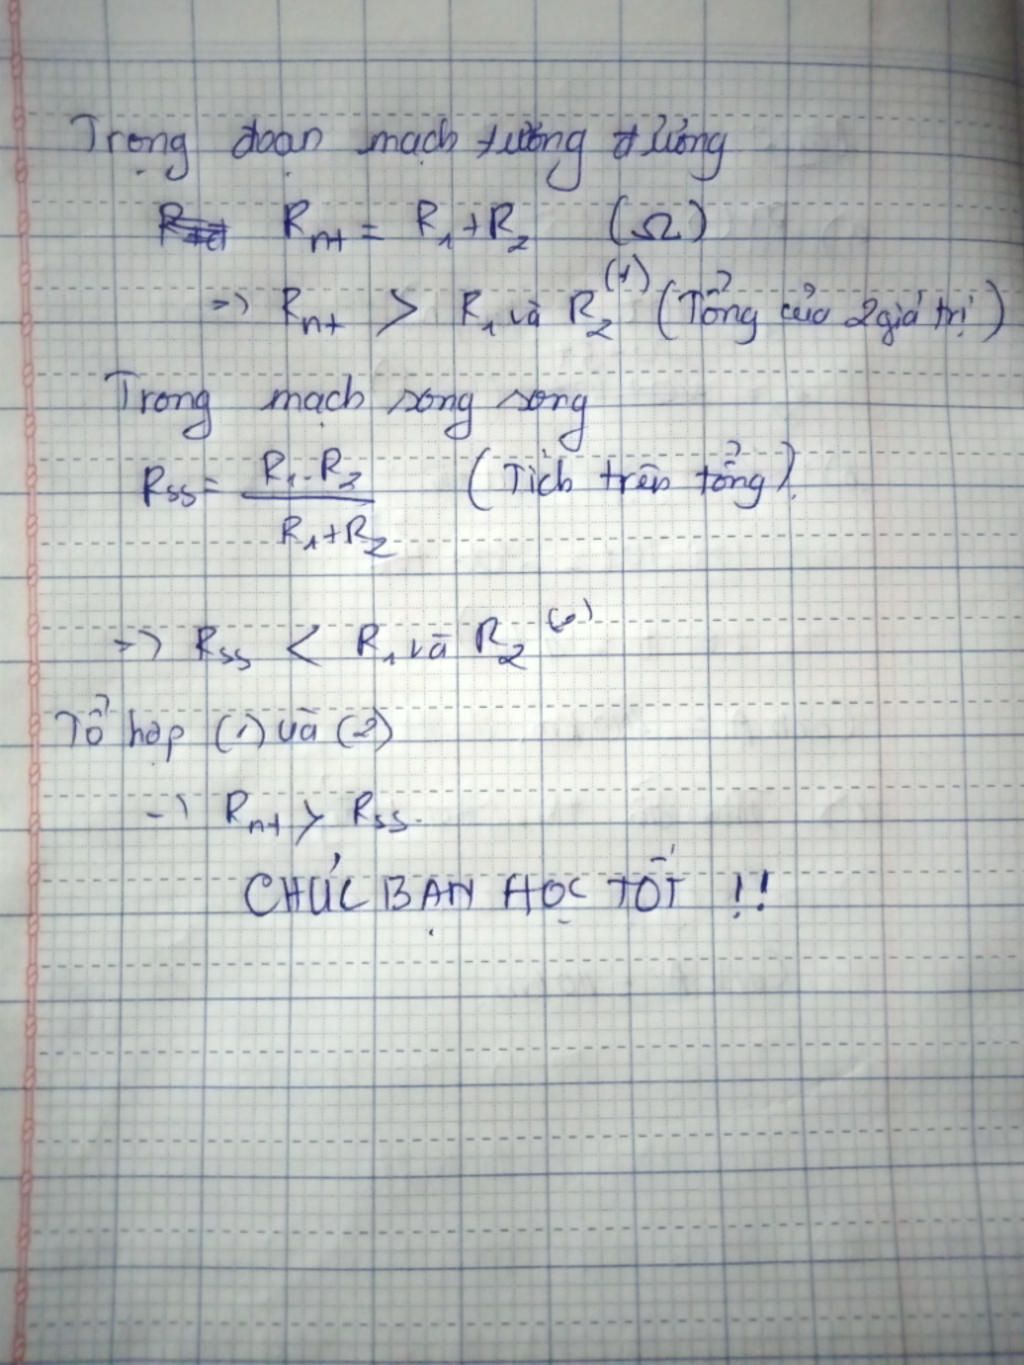 Trong đoạn mạch tương đương
Rnt = R1 + R2 (Ω)
=> Rnt > R1 và R2 (1) (Tổng của 2 giá trị)
Trong mạch song song
Rss = R1.R2 / R1+R2 (Tích trên tổng).
=> Rss < R1 và R2 (2)
Tổ hợp (1) và (2)
-> Rnt > Rss.
CHÚC BẠN HỌC TỐT !!